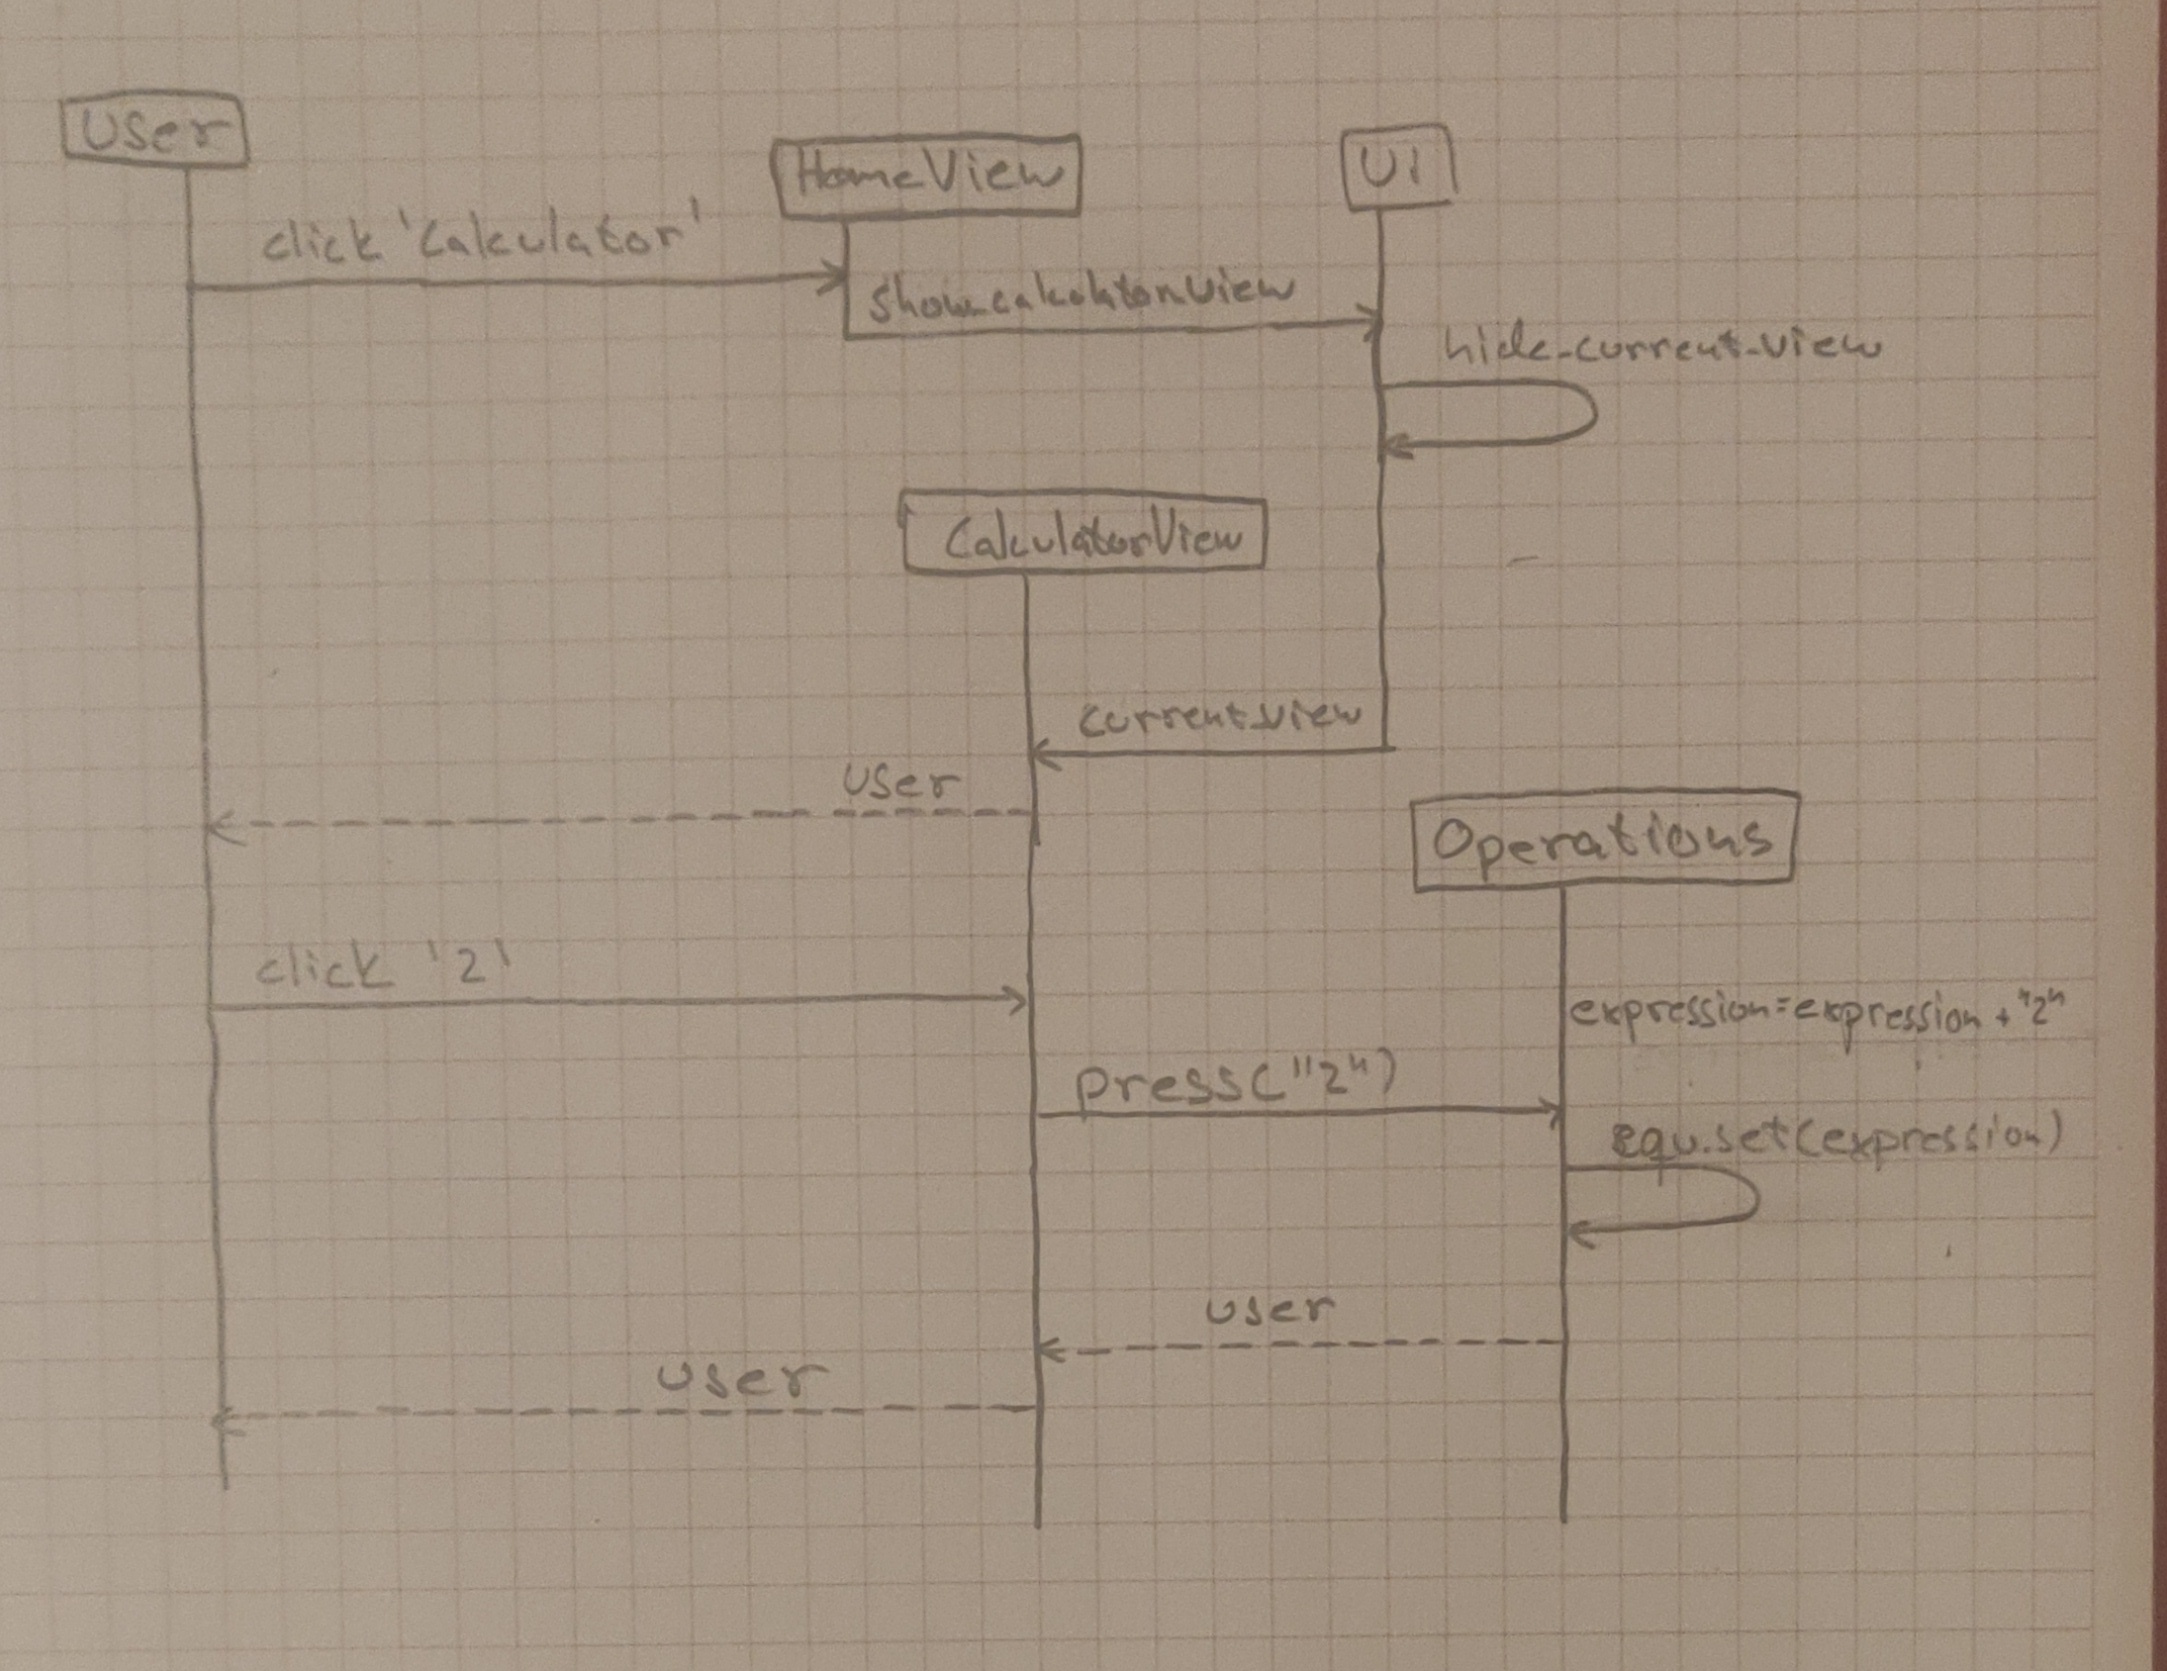 User
HomeView
UI
click 'Calculator'
hide_current_view
CalculatorView
current_view
user
Operations
click '2'
expression=expression + "2"
press("2")
equ.set(expression)
user
user